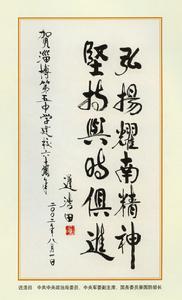 弘揚耀南精神
堅持與時俱進
賀淄博第五中學建校六十周年
遲浩田
二〇〇二年八月一日
迟浩田　中共中央政治局委员、中央军委副主席、国务委员兼国防部长